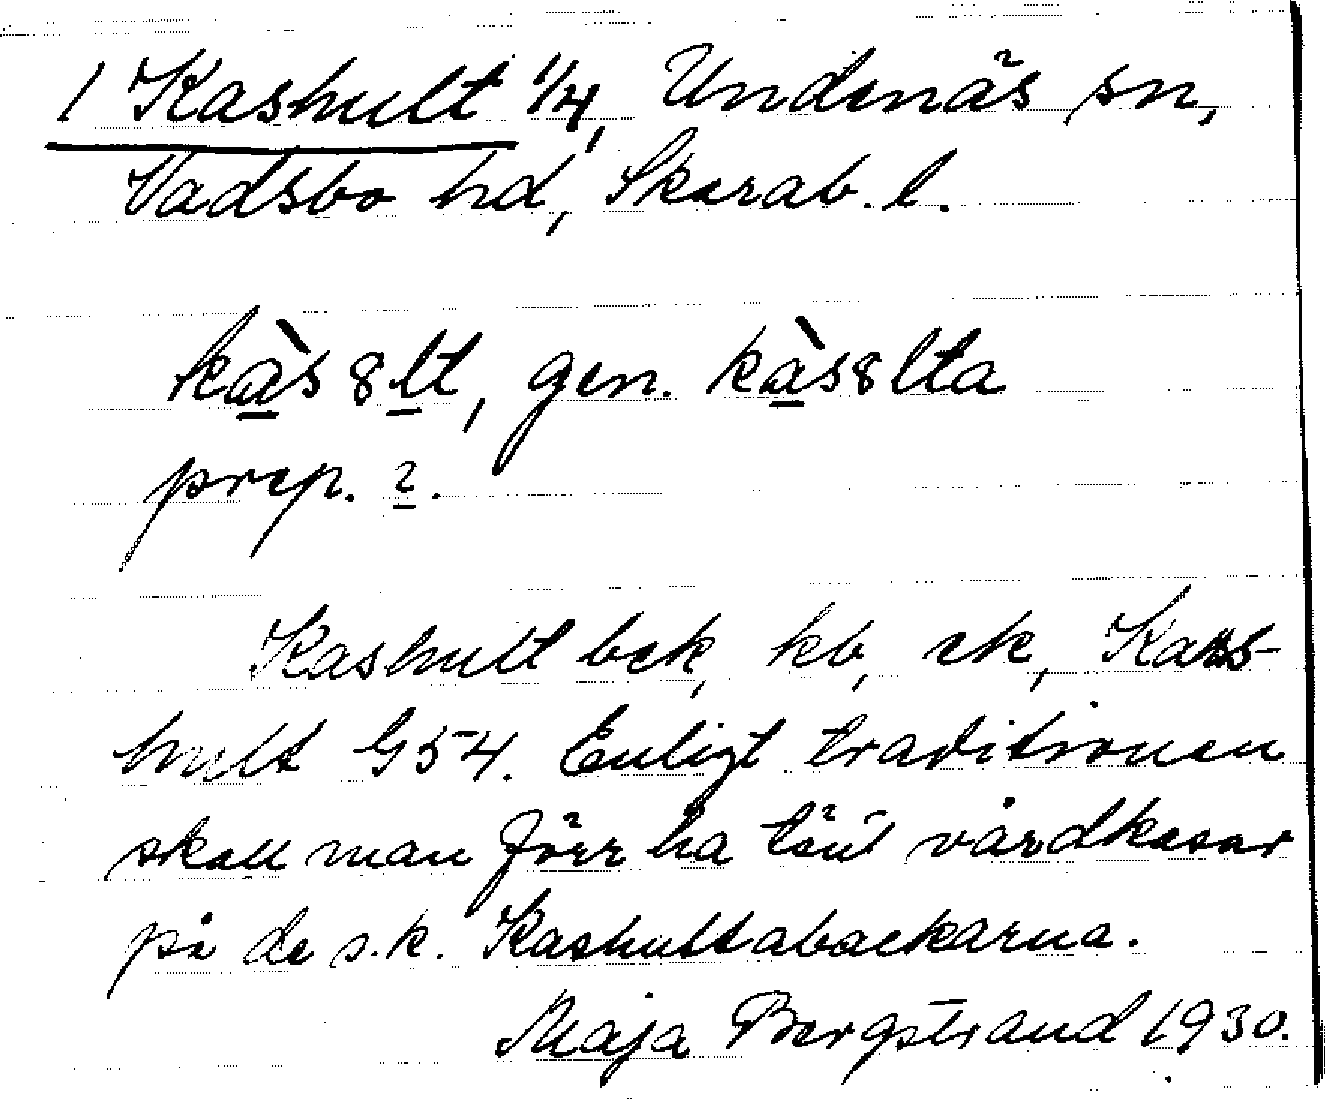 1 Kashult 1/4, Undenäs sn,
Vadsbo hd, Skarab. l.
kàs8lt, gen. kàs8lta
prep. 2.
Kashult bek, kb, ek, Kass-
hult G54. Enligt traditionen
skall man förr ha tänt vårdkasar
på de s.k. Kashultabackarna.
Maja Bergstrand 1930.